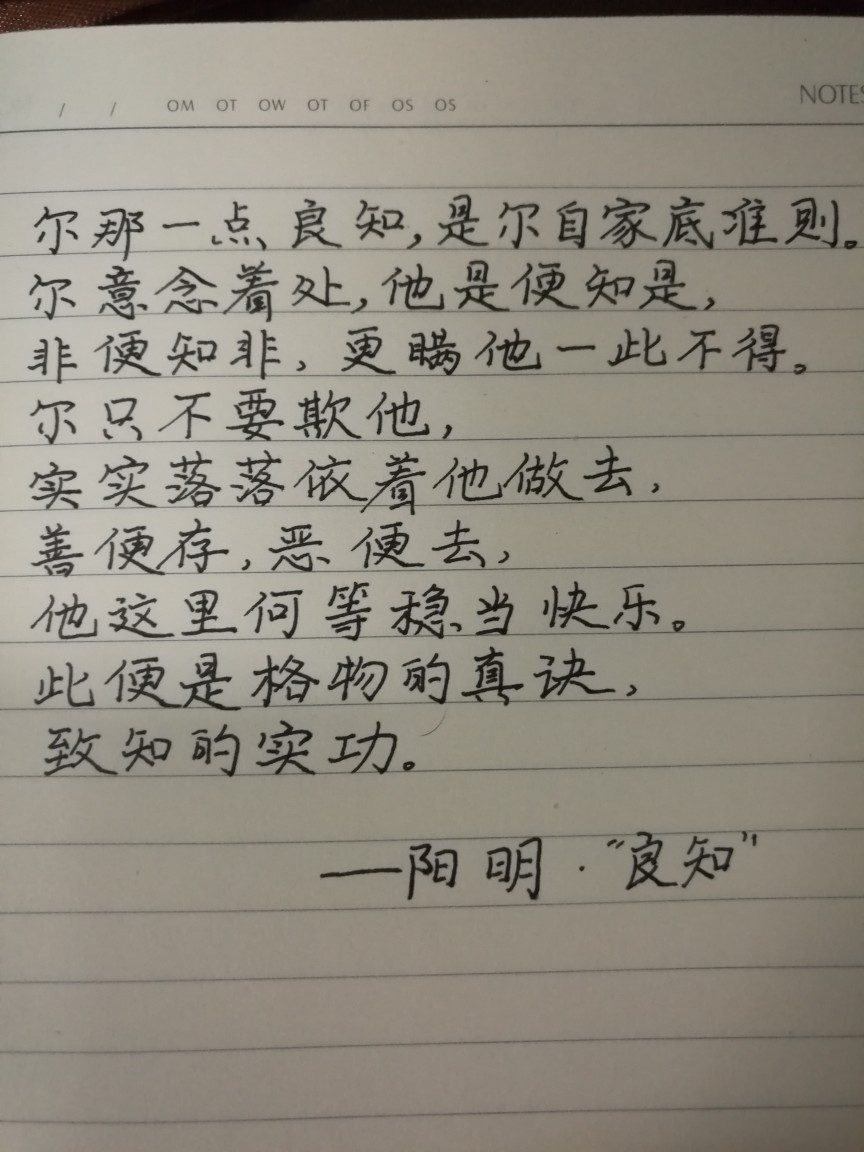 / / OM OT OW OT OF OS OS
NOTES
尔那一点良知,是尔自家底准则。
尔意念着处,他是便知是,
非便知非,更瞒他一此不得。
尔只不要欺他,
实实落落依着他做去,
善便存,恶便去,
他这里何等稳当快乐。
此便是格物的真诀,
致知的实功。
——阳明·“良知”